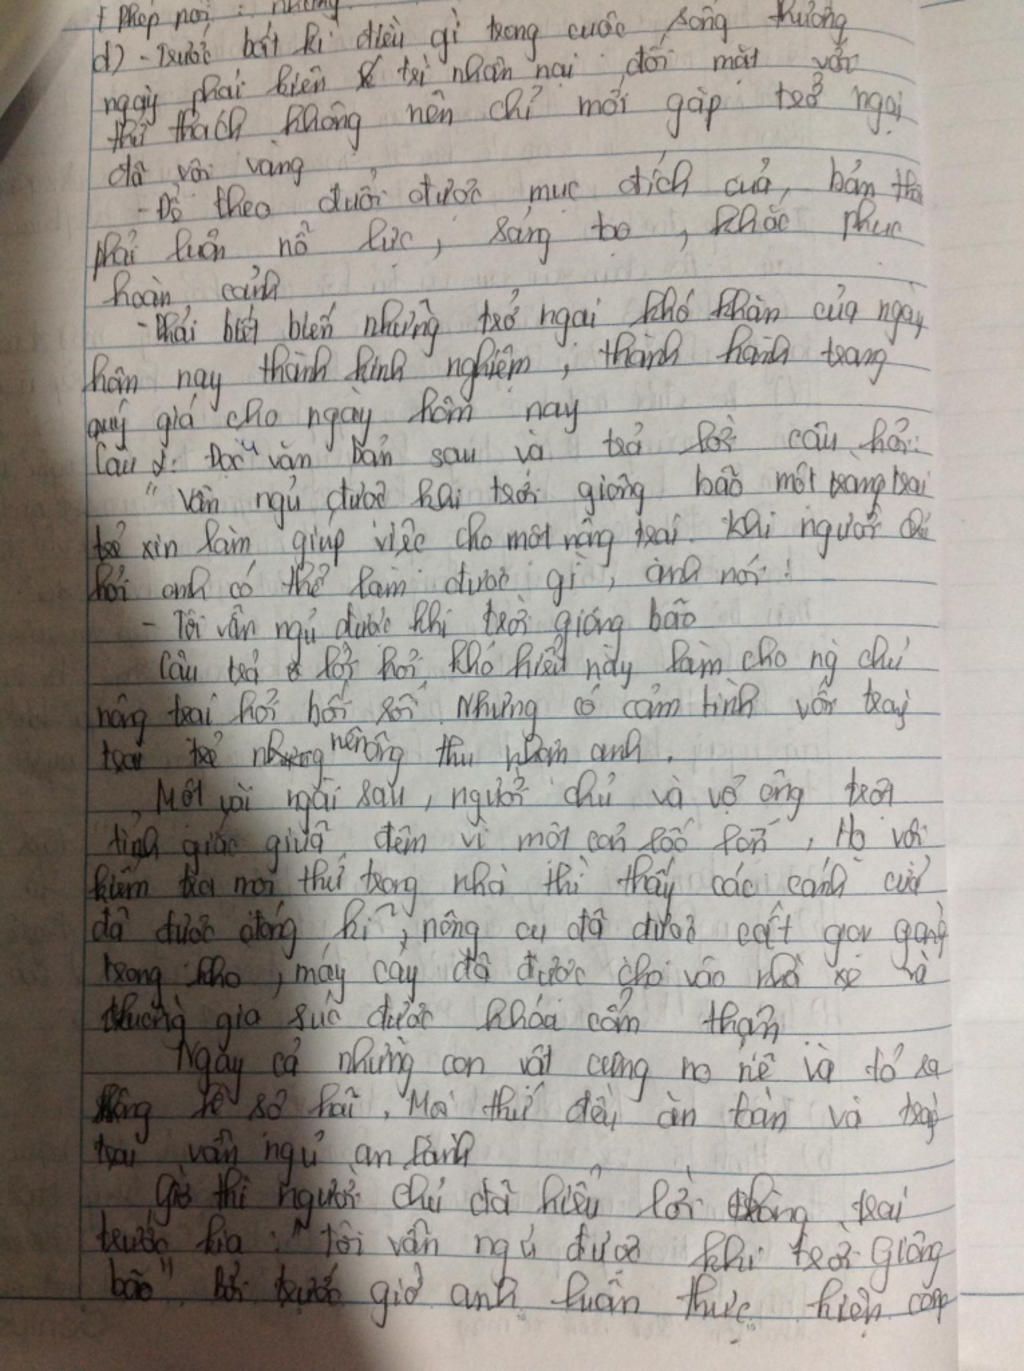 + Phép nối : nhưng
d) - Trước bất kì điều gì trong cuộc sống thường
ngày phải kiên trì nhẫn nại, đối mặt với
thử thách không nên chỉ mới gặp trở ngại
đã vội vàng
- Để theo đuổi được mục đích của, bản thân
phải luôn nỗ lực, sáng tạo, khắc phục
hoàn cảnh
- Phải biết biến những trở ngại khó khăn của ngày
hôm nay thành kinh nghiệm, thành hành trang
quý giá cho ngày hôm nay
Câu 2: Đọc văn bản sau và trả lời câu hỏi:
" Vẫn ngủ được khi trời giông bão một trang trai
trẻ xin làm giúp việc cho một nông trại. Khi người chủ
hỏi anh có thể làm được gì, anh nói :
- Tôi vẫn ngủ được khi trời giông bão
Câu trả lời hơi khó hiểu này làm cho ng chủ
nông trại hơi bối rối. Nhưng có cảm tình với tray
trai trẻ nên ông thu nhận anh.
Một vài ngài sau, người chủ và vợ ông trợt
tỉnh giấc giữa đêm vì một cơn lốc lớn, Họ vội
kiểm tra mọi thứ trong nhà thì thấy các cánh cửa
đã được đóng kĩ, nông cụ đã được cất gọn gàng
trong kho, máy cày đã được cho vào nhà xe và
chuồng gia súc được khóa cẩn thận
Ngay cả những con vật cũng no nê và
không hề sợ hãi. Mọi thứ đều an toàn và tràg
trai vẫn ngủ an lành
Giờ thì người chủ đã hiểu lời chàng trai
trước kia : "Tôi vẫn ngủ được khi trời Giông
bão". Bởi trước giờ anh luôn thực hiện công